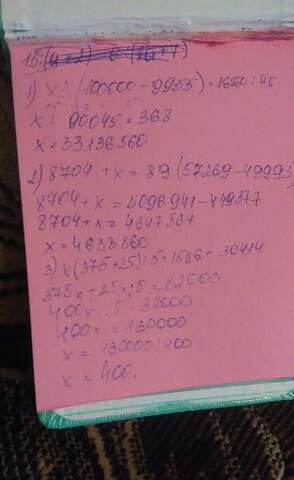 15. (a+2) 6 (3a+1)
1) x : (100000 - 9955) = 16560 : 45
x : 90045 = 368
x = 33136560
2) 8704 + x = 89 (57269 - 49993)
8704 + x = 5096941 - 449377
8704 + x = 4647564
x = 4638860
3) x (375+25) : 5 = 1586 + 30414
375x + 25x : 5 = 32000
400x : 5 = 32000
400x = 130000
x = 130000 : 400
x = 400.